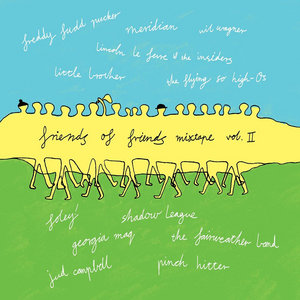 freddy fudd pucker
meridian
wil wagner
lincoln le fevre & the insiders
little brother
the flying so high-Os
friends of friends mixtape vol. II
foley
shadow league
georgia maq
the fairweather band
jud campbell
pinch hitter